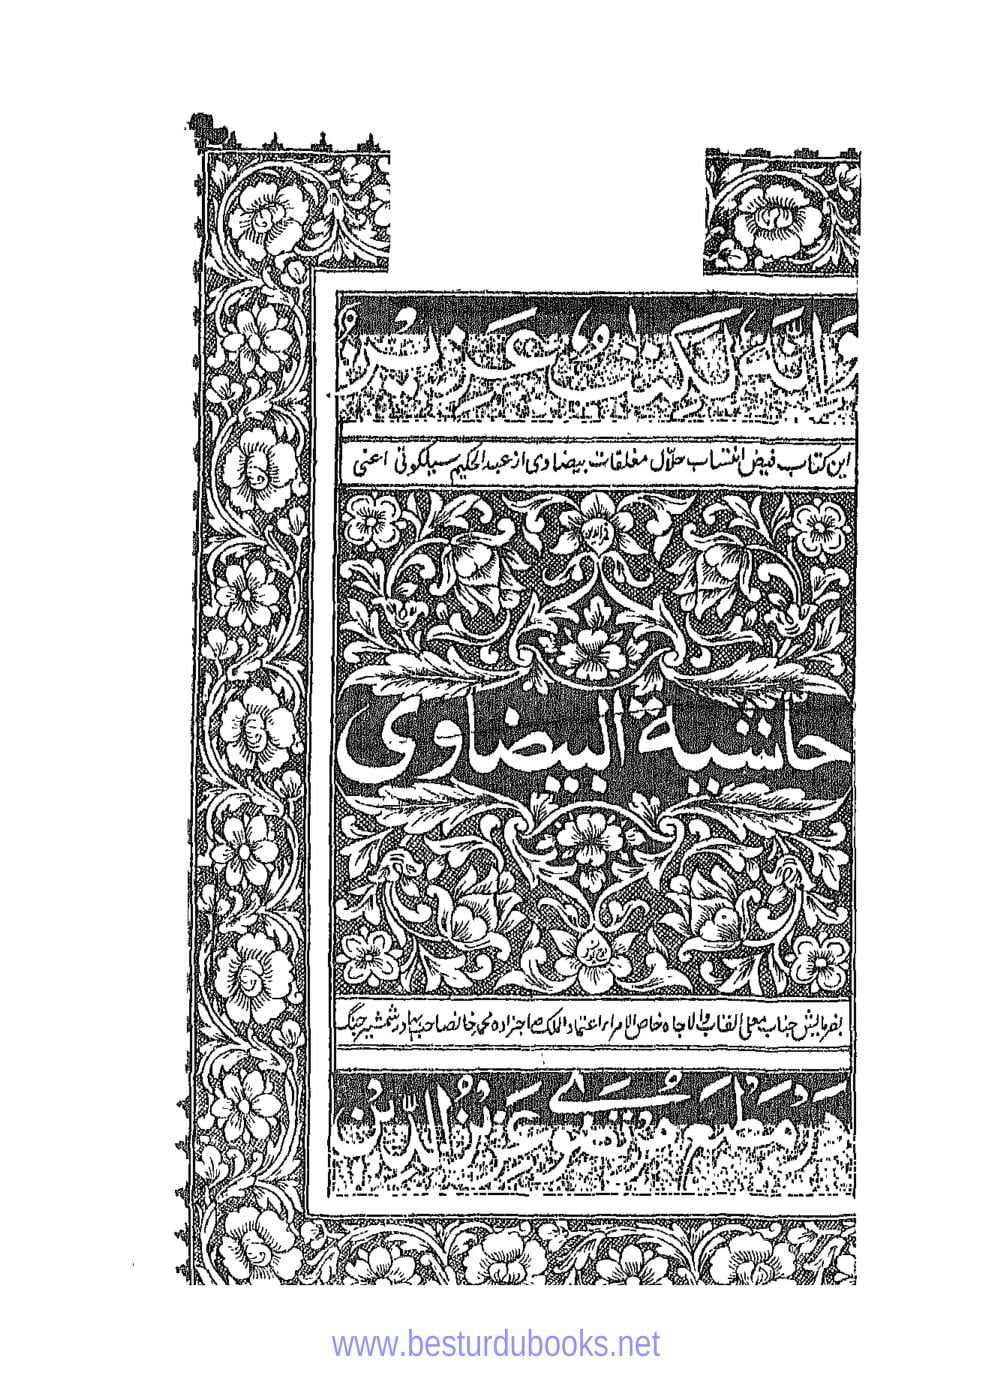 وَاِنَّهٗ لَكِتٰبٌ عَزِيْزٌ
این کتاب فیض انتساب حلّال مغلقات بیضاوی از عبدالحکیم سیالکوٹی اعنی
حاشیة البیضاوی
بفرمایش جناب معلی القاب والاجاه خاص الامراء اعتماد الملک صاحبزاده محمد خانصاحب بہادر شمشیر جنگ
در مطبع مرتضوی عزیز الدین
www.besturdubooks.net